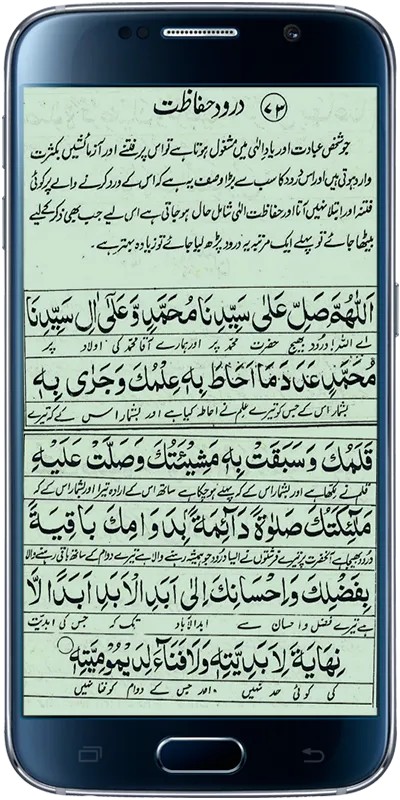 ۷۳ درود حفاظت
جو شخص عبادت اور یاد الٰہی میں مشغول ہوتا ہے تو اس پر فتنے اور آزمائشیں بکثرت
وارد ہوتی ہیں اور اس درود کا سب سے بڑا وصف یہ ہے کہ اس کے ورد کرنے والے پر کوئی
فتنہ اور ابتلا نہیں آتا اور حفاظت الٰہی شامل حال ہو جاتی ہے اس لیے جب بھی ذکر کیلیے
بیٹھا جائے تو پہلے ایک مرتبہ یہ درود پڑھ لیا جائے تو زیادہ بہتر ہے۔
اَللّٰهُمَّ صَلِّ عَلٰى سَيِّدِنَا مُحَمَّدٍ وَّعَلٰٓى اٰلِ سَيِّدِنَا
اے اللہ! درود بھیج حضرت محمد پر اور ہمارے آقا محمد کی اولاد پر
مُحَمَّدٍ عَدَدَ مَا اَحَاطَ بِهٖ عِلْمُكَ وَجَرٰى بِهٖ
بشمار اس کے جس کو تیرے علم نے احاطہ کیا ہے اور بشمار اس کے کہ تیرے
قَلَمُكَ وَسَبَقَتْ بِهٖ مَشِيْئَتُكَ وَصَلَّتْ عَلَيْهِ
قلم نے لکھا ہے اور بشمار اس کے کہ پہلے ہو چکا ہے ساتھ اس کے ارادہ تیرا اور بشمار اس کے کہ
مَلٰٓئِكَتُكَ صَلٰوةً دَآئِمَةً ۢ بِدَوَامِكَ بَاقِيَةً
درود بھیجا ہے آنحضرت پر تیرے فرشتوں نے ایسا درود جو ہمیشہ رہنے والا ہے تیرے دوام کے ساتھ باقی رہنے والا
بِفَضْلِكَ وَاِحْسَانِكَ اِلٰى اَبَدِ الْاَبَدِ اَبَدًا لَّا
ہے تیرے فضل و احسان سے ابد الآباد تک کہ جس کی ابدیت
نِهَايَةَ لِاَبَدِيَّتِهٖ وَلَا فَنَآءَ لِدَيْمُوْمِيَّتِهٖ
کی کوئی حد نہیں اور جس کے دوام کو فنا نہیں